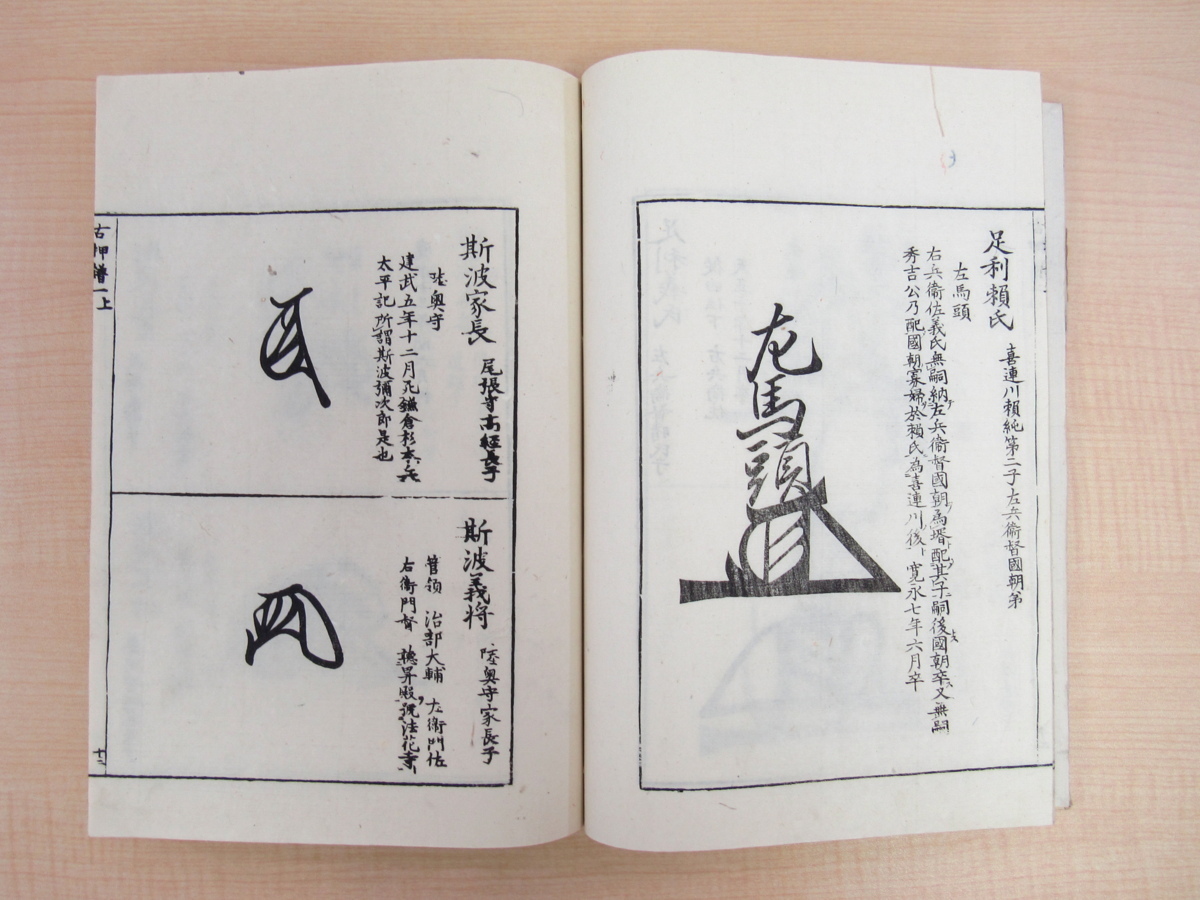 足利賴氏 喜連川賴純第二子左兵衞督國朝弟
左馬頭
右兵衞佐義氏無嗣納左兵衞督國朝爲壻配其子嗣後國朝卒又無嗣
秀吉公乃配國朝寡婦於賴氏為喜連川後寛永七年六月卒
左馬頭
斯波家長 尾張守高経長子
陸奥守
建武五年十二月死鎌倉杉本之兵
太平記所謂斯波彌次郎是也
斯波義将 陸奥守家長子
管領 治部大輔 左衞門佐
右衞門督 法花寺
古押譜一上
十二